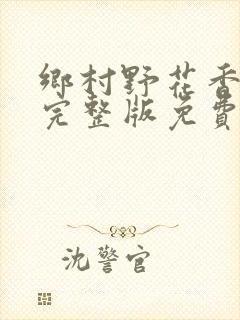 鄉村野花香
完整版免費
沈警官